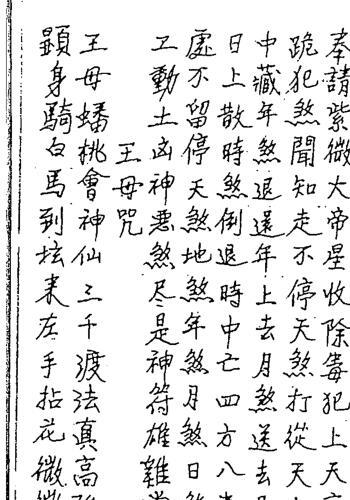 奉請紫微大帝星收除毒犯上天
跪犯煞聞知走不停天煞打從天
中藏年煞退還年上去月煞送去
日上散時煞倒退時中亡四方八
處不留停天煞地煞年煞月煞日煞
工動土凶神惡煞尽是神符雄雜
王母咒
王母蟠桃會神仙三千渡法真高
顕身騎白馬到坛来左手拈花微微